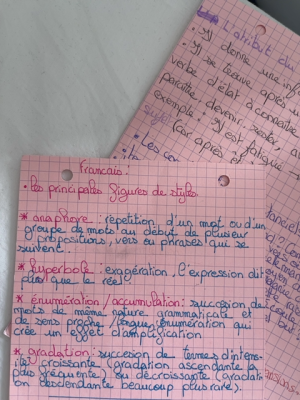 L'atribut du
• Il donne une inf
• Il se trouve après u
verbe d'état à connaître
paraître, devenir, rester, a
exemple : Il est fatigué →
sujet
(car après
• Les co
Francais :
• les principales figures de styles.
* anaphore : répetition d'un mot ou d'un
groupe de mots au début de plusieur
propositions, vers ou phrases qui se
suivent.
* hyperbole : exagération, l'expression dit
plus que le réel
* énumération/accumulation : succesion de
mots de même nature grammaticale et
de sens proche / longue énumération qui
crée un effet d'amplification
* gradation : succesion de termes d'intens-
ité croissante (gradation ascendante la
plus fréquente) ou décroissante (gradati-
on descendante beaucoup plus rare).